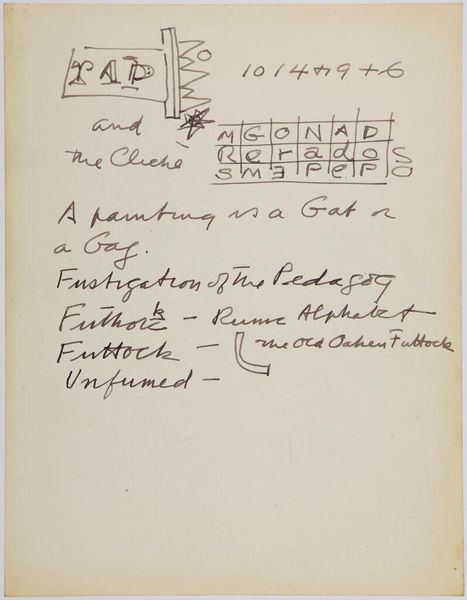 TAD
10 14 + 9 + 6
and
the Cliché
M G O N A D
R e r a d o S
S M Ǝ P e P O
A painting is a Gat or
a Gag.
Fustigation of the Pedagog
Futhork - Runic Alphabet
Futtock - the old Oaken Futtock
Unfumed -